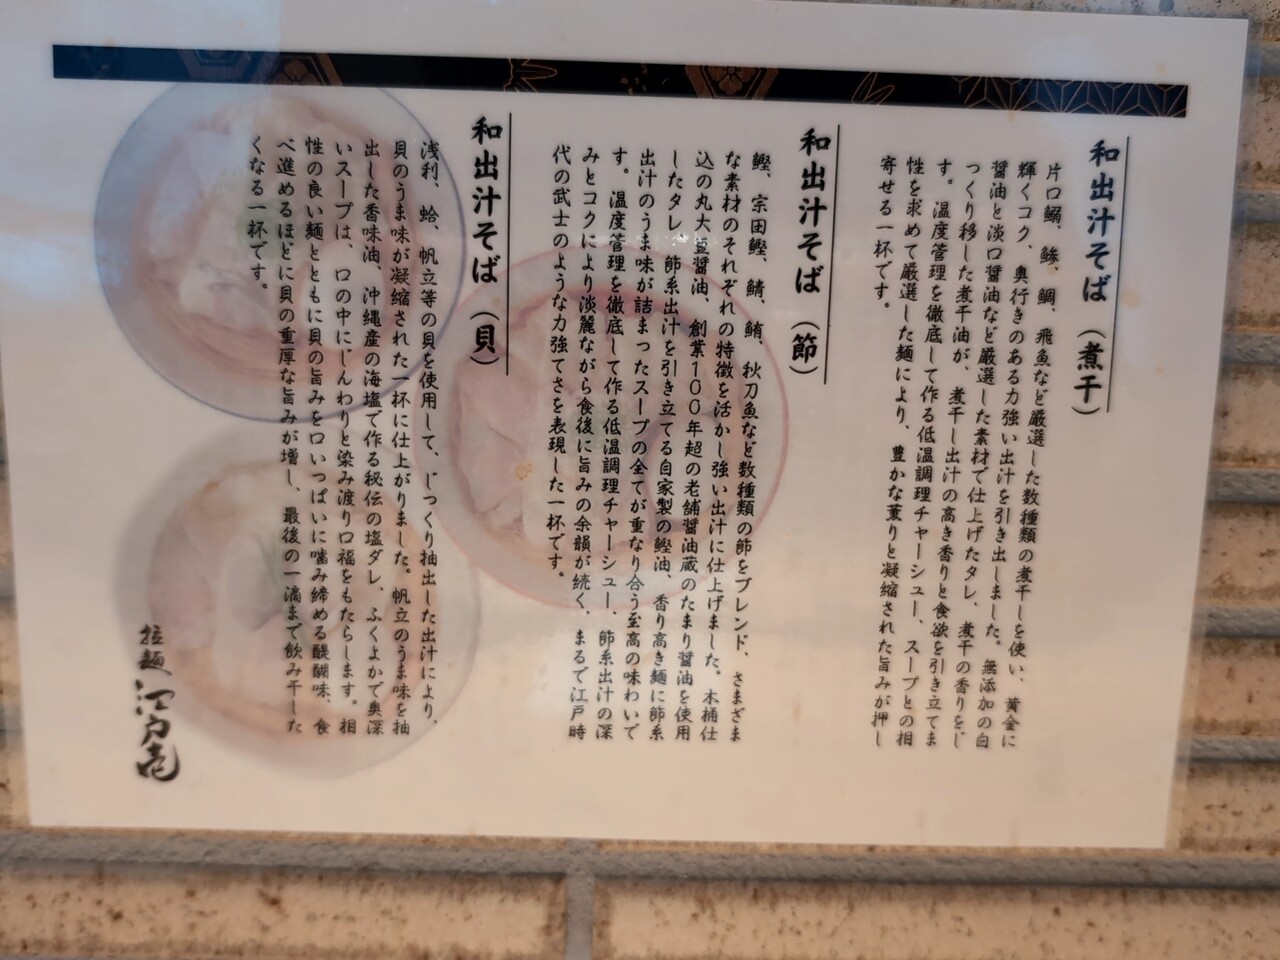 和出汁そば（煮干）
片口鰯、鯵、鯛、飛魚など厳選した数種類の煮干しを使い、黄金に
輝くコク、奥行きのある力強い出汁を引き出しました。無添加の白
醤油と淡口醤油など厳選した素材で仕上げたタレ、煮干の香りをじ
っくり移した煮干油が、煮干し出汁の高き香りと食欲を引き立てま
す。温度管理を徹底して作る低温調理チャーシュー、スープとの相
性を求めて厳選した麺により、豊かな薫りと凝縮された旨みが押し
寄せる一杯です。
和出汁そば（節）
鰹、宗田鰹、鯖、鮪、秋刀魚など数種類の節をブレンド、さまざま
な素材のそれぞれの特徴を活かし強い出汁に仕上げました。木桶仕
込の丸大豆醤油、創業100年超の老舗醤油蔵のたまり醤油を使用
したタレ、節系出汁を引き立てる自家製の鰹油、香り高き麺に節系
出汁のうま味が詰まったスープの全てが重なり合う至高の味わいで
す。温度管理を徹底して作る低温調理チャーシュー、節系出汁の深
みとコクにより淡麗ながら食後に旨みの余韻が続く、まるで江戸時
代の武士のような力強てさを表現した一杯です。
和出汁そば（貝）
浅利、蛤、帆立等の貝を使用して、じっくり抽出した出汁により、
貝のうま味が凝縮された一杯に仕上がりました。帆立のうま味を抽
出した香味油、沖縄産の海塩で作る秘伝の塩ダレ、ふくよかで奥深
いスープは、口の中にじんわりと染み渡り口福をもたらします。相
性の良い麺とともに貝の旨みを口いっぱいに噛み締める醍醐味、食
べ進めるほどに貝の重厚な旨みが増し、最後の一滴まで飲み干した
くなる一杯です。
拉麺 江戸壱